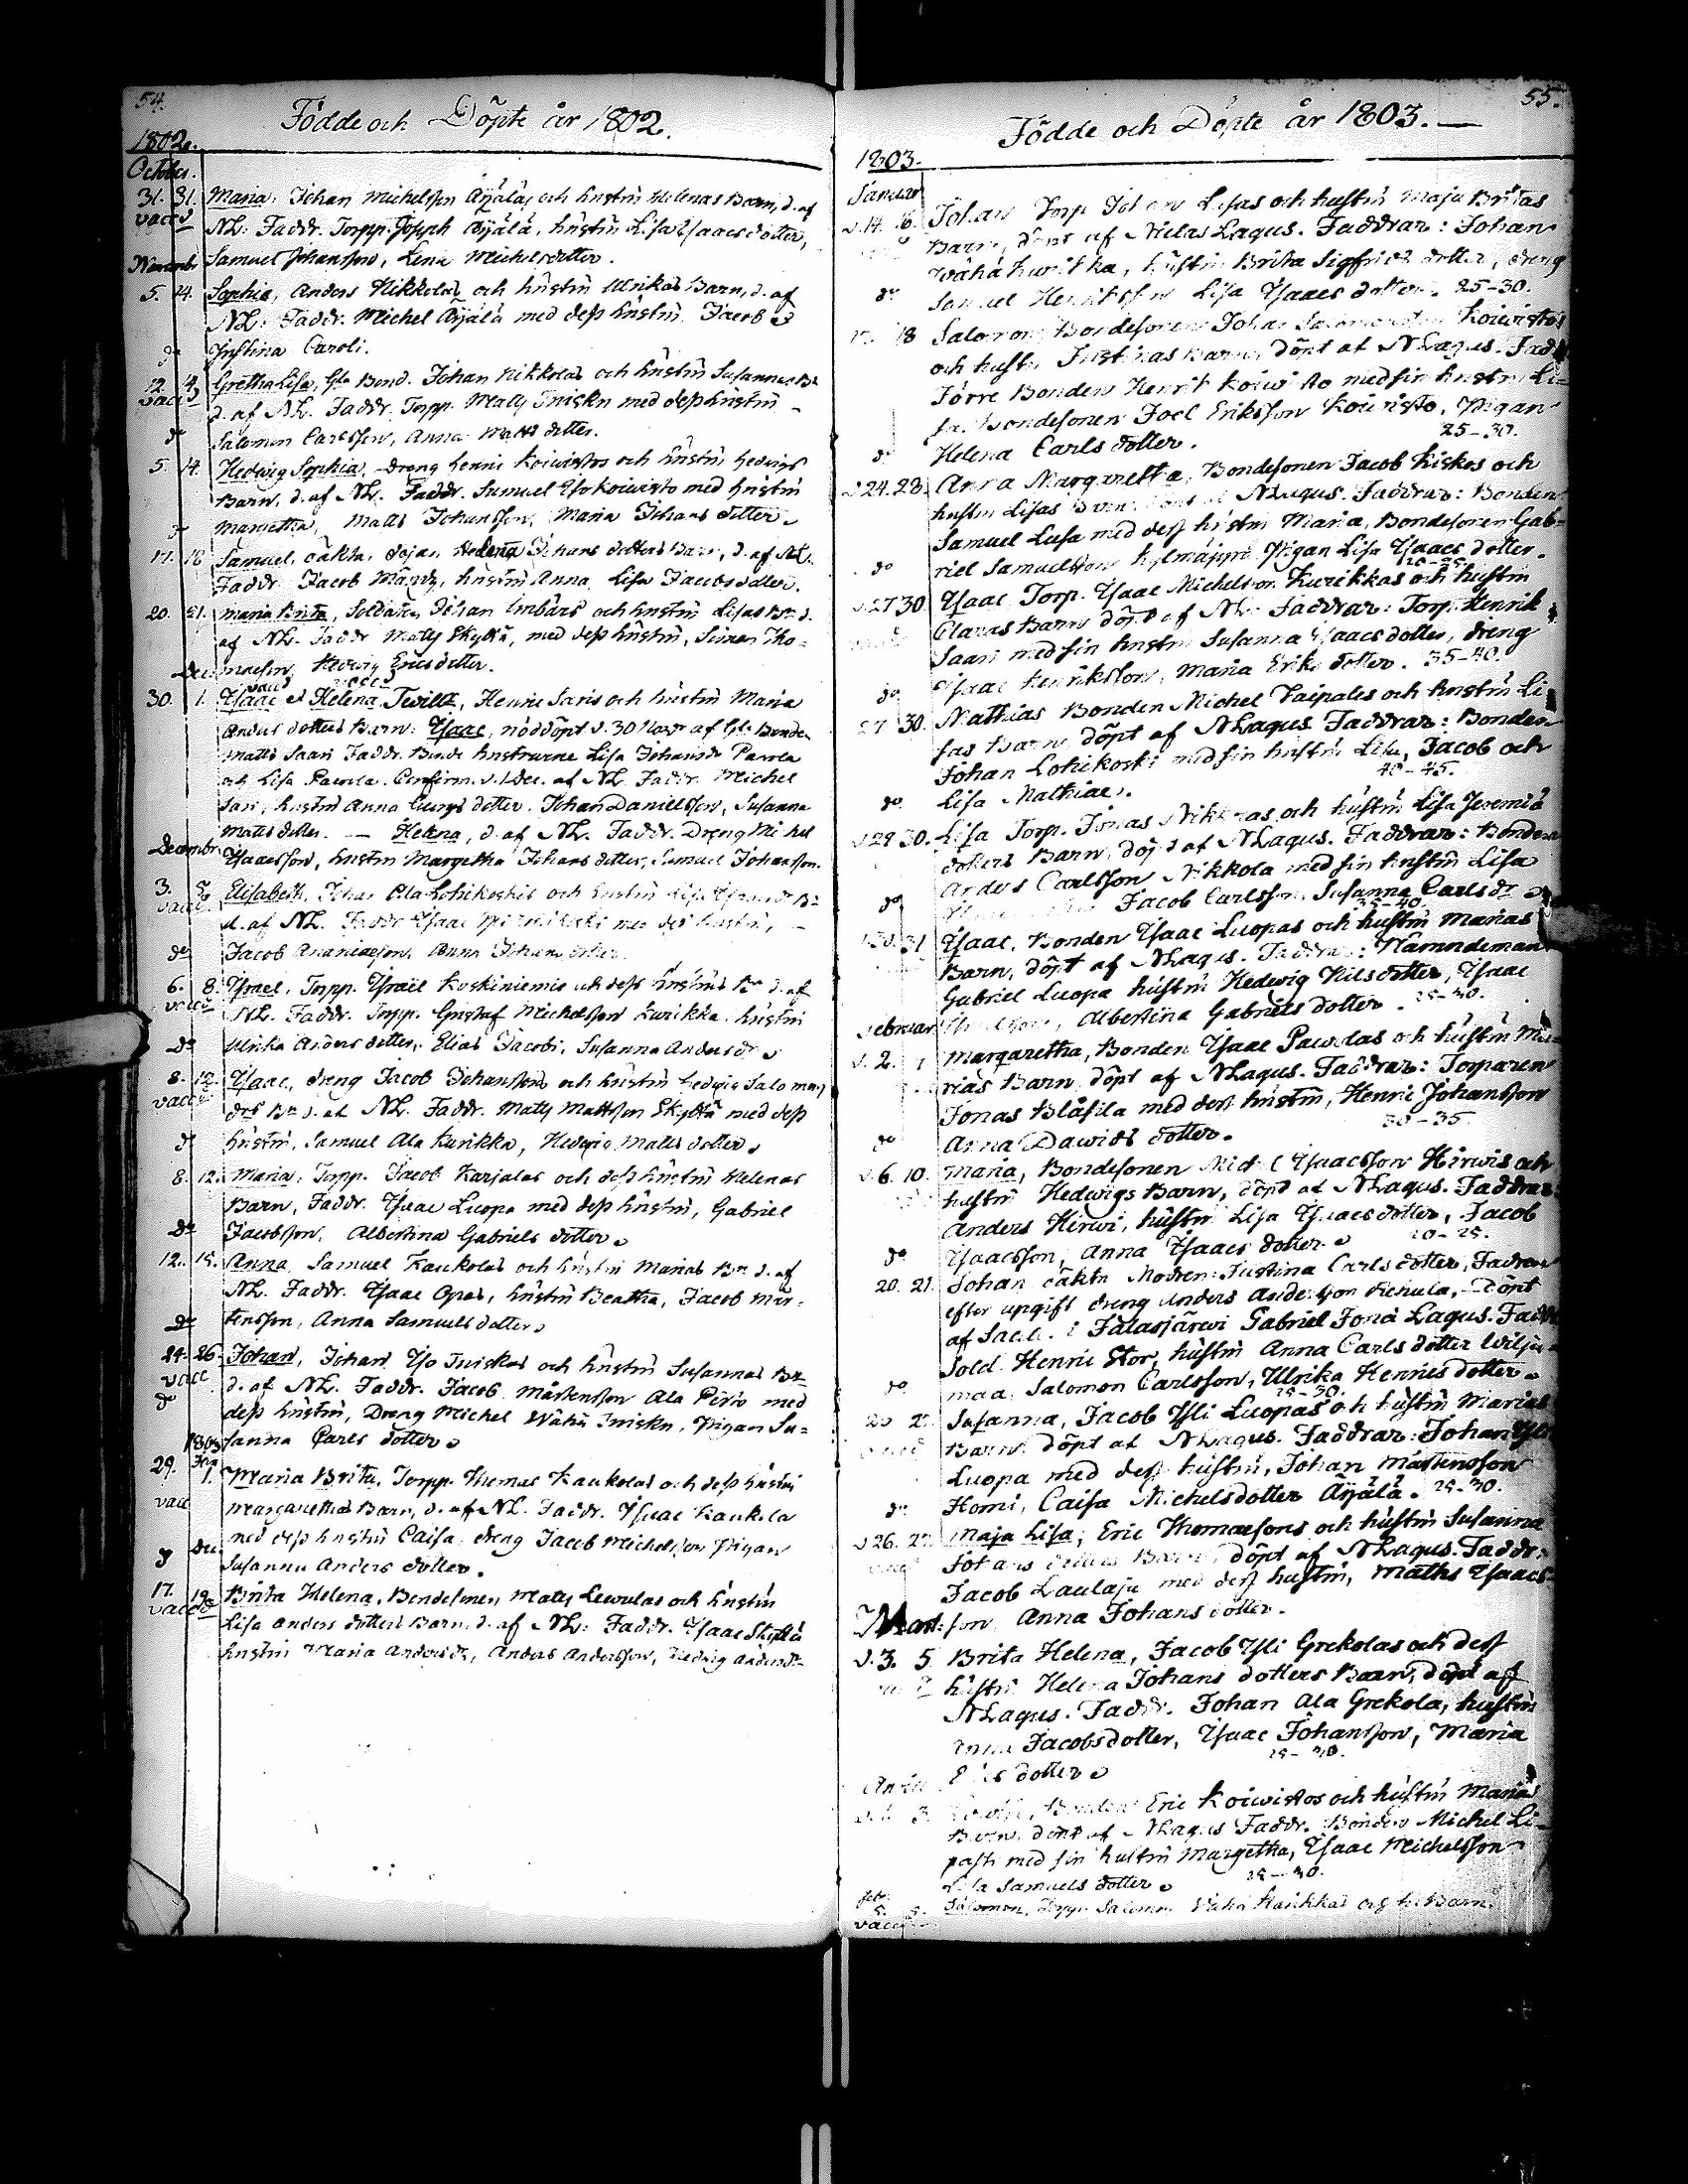 54.
Födde och Döpte år 1802.
1802.
October.
31. 31. Maria, Johan Michelsson Äijäläs och hustru Helenas Barn, d. af
vacc. NL. Faddr. Torpp. Joseph Äijälä, hustru Lisa Isaacsdotter,
Novembr Samuel Johansson, Lena Michelsdotter.
5. 14. Sophia, Anders Nikkolas och hustru Ulrikas Barn, d. af
NL. Faddr. Michel Äijälä med dess hustru Jacob
do Justina Caroli.
12. 14. Gretha Lisa, Bond. Johan Nikkolas och hustru Susannas Bn
vacc d. af NL. Faddr. Torpp. Matts Iniskn med dess hustru
do Salomon Carlsson, Anna Matts dotter.
5. 14. Hedwig Sophia, dreng Henric Koiwistos och hustru Hedwigs
Barn, d. af NL. Faddr. Samuel Yso koiwisto med hustru
Margetha, Matts Johansson, Maria Johans dotter
17. 18 Samuel, oäkta, pigan Helena Johans dotters Barn, d. af NL.
Faddr. Jacob Mäntz, hustru Anna Lisa Jacobsdotter.
20. 21. Maria Brita, Soldaten Johan Embärs och hustru Lisas Bn d.
af NL. Faddr Matts Skyttä, med dess hustru, Simon Tho=
Dec maesson, Hedwig Ericsdotter.
vacc vacc
30. 1. Ysaac et Helena Twill, Henric Saris och hustru Maria
Anders dotters Barn: Ysaac, nöddöpt d. 30 Novr af Gl. Bonden
Matts Saari Faddr. Bonde hustrurne Lisa Johansdr Pawola
och Lisa Pawola. Confirm. d. 1 Dec. af NL Faddr. Michel
Sari, hustru Anna Georgs dotter. Johan Danielsson, Susanna
Matts dotter. — Helena, d. af NL. Faddr. Dreng Michel
Decembr Ysaacsson, hustru Margetha Johans dotter, Samuel Johansson.
3. 5. Elisabeth, Johan Ala Lohikoskis och hustru Lisa Bn
vacc d. af NL. Faddr Ysaac med dess hustru,
do Jacob Ananiaeson, Anna Johans dotter
6. 8. Ysrael, Torpp. Ysrael Koskiniemis och dess hustrus Bn d. af
vacc NL. Faddr. Torpp. Gustaf Michelsson Kurikka, hustru
do Ulrika Anders dotter, Elias Jacobi, Susanna Anders dr
8. 12. Ysaac, dreng Jacob Johanssons och hustru Hedwig Salomons
vacc drs Bn d. af NL. Faddr. Matts Mattsson Skyttä med dess
do hustru, Samuel Ala Kurikka, Hedwig Matts dotter
8. 12. Maria, Torpp. Jacob Karjalas och dess hustru Helenas
Barn, Faddr. Ysaac Luopa med dess hustru, Gabriel
do Jacobsson, Albertina Gabriels dotter
12. 15. Anna, Samuel Kaukolas och hustru Marias Bn d. af
NL. Faddr. Ysaac Opas, hustru Beatha, Jacob Mår=
do tensson, Anna Samuels dotter
24. 26. Johan, Johan Yso Iniskas och hustru Susannas Bn
vacc d. af NL. Faddr. Jacob Mårtensson Ala Pirio med
do dess hustru, Dreng Michel Wähä Iniskn, Pigan Su=
1803 sanna Carls dotter
Jan
29. 1. Maria Brita, Torpp. Thomas Kaukolas och dess hustru
vacc Margarethas Barn, d. af NL. Faddr. Ysaac Kaukola
med dess hustru Caisa, dreng Jacob Michelsson Pigan
do Dec Susanna Anders dotter.
17. 19. Brita Helena, Bondesonen Matts Lewulas och hustru
vacc Lisa Anders dotters Barn, d. af NL: Faddr. Ysaac Skyttä
hustru Maria Andersdr, Anders Andersson, Hedwig Andersdr
55.
Födde och Döpte år 1803. —
1803.
Januar
d. 14. 16. Johan Torp Johan Lisas och hustru Maja Britas
Barn, döpt af Niclas Lagus. Faddrar: Johan
Wähä Kurikka, hustru Brita Sigfrids dotter, dreng
do Samuel Henriksson Lisa Ysaacs dotter. 25-30.
17. 18 Salomon, Bondesonen Johan Salomonsson Koiwistos
och hustru Justinas Barn, döpt af NLagus. Fadd
Förre Bonden Henrik Koiwisto med sin hustru Li=
sa. Bondesonen Joel Eriksson Koiwisto, Pigan
25-30.
do Helena Carls dotter.
d. 24. 28. Anna Margaretha, Bondesonen Jacob Kiskos och
hustru Lisas Barn döpt af NLagus. Faddrar: Bonden
Samuel Lusa med dess hustru Maria, Bondesonen Gab=
do riel Samuelsson Kylmäjppi Pigan Lisa Ysaacs dotter.
d. 27 30. Ysaac Torp. Ysaac Michelsson Kurikkas och hustru
Claras Barn döpt af NL. Faddrar: Torp. Henrik
Saari med sin hustru Susanna Ysaacs dotter, dreng
do Ysaac Henriksson, Maria Eriks dotter. 35-40.
27 30. Mathias Bonden Michel Paipales och hustru Li
sas Barn döpt af NLagus. Faddrar: Bonden
Johan Lohikoski med sin hustru Lisa, Jacob och
40-45.
do Lisa Mathiae.
d 29 30. Lisa Torp. Jonas Nikkolas och hustru Lisa Jeremiæ
dotters Barn, döpt af NLagus. Faddrar: Bonden
Anders Carlsson Nikkola med sin hustru Lisa
do Jacob Carlsson, Susanna Carls dr
35-40.
d. 30. 31 Ysaac, Bonden Ysaac Luopas och hustru Marias
Barn, döpt af NLagus. Faddrar: Nämndeman
Gabriel Luopa hustru Hedwig Nilsdotter, Ysaac
Februar , Albertina Gabriels dotter. 25-30.
d. 2. Margaretha, Bonden Ysaac Pawolas och hustru Ma=
rias Barn döpt af NLagus. Faddrar: Torparen
Jonas Blåfila med dess hustru, Henric Johansson
30-35.
do Anna Dawids dotter.
d. 6. 10. Maria, Bondesonen Michel Ysaacsson Hirwis och
hustru Hedwigs Barn, döpt af NLagus. Faddrar
Anders Hirwi, hustru Lisa Ysaacsdotter, Jacob
do Ysaacsson, Anna Ysaacs dotter. 20-25.
20. 21. Johan oäkta Modren: Justina Carls dotter, Fadren
efter upgift dreng Anders Andersson Riehula, döpt
af Sacell. i Jalasjärwi Gabriel Jonæ Lagus. Fadd
Sold. Henric Stor, hustru Anna Carls dotter Wilja=
do maa, Salomon Carlsson, Ulrika Henrics dotter
25-30.
20 27. Susanna, Jacob Yli Luopas och hustru Marias
vacc Barn döpt af NLagus. Faddrar: Johan Yli
Luopa med dess hustru, Johan Mårtensson
do Homi, Caisa Michelsdotter Äijälä. 25-30.
d 26. 27. Maja Lisa, Eric Thomaesons och hustru Susanna
Johans dotters Barn, döpt af NLagus. Faddr.
Jacob Laulaja med dess hustru, Maths Ysaacs
Mart: son, Anna Johans dotter.
d. 3. 5 Brita Helena, Jacob Yli Grekolas och dess
hustru Helena Johans dotters Barn, döpt af
NLagus. Faddr. Johan Ala Grekola, hustru
Anna Jacobsdotter, Ysaac Johansson, Maria
25-30.
dotter
3. , Bonden Eric Koiwistos och hustru Marias
Barn, döpt af NLagus Faddr. Bonden Michel Li=
pasti med sin hustru Margetha, Ysaac Michelsson
Lisa Samuels dotter 25-30.
febr.
5. Salomon, Torpp. Salomon Wähä Barn
vacc